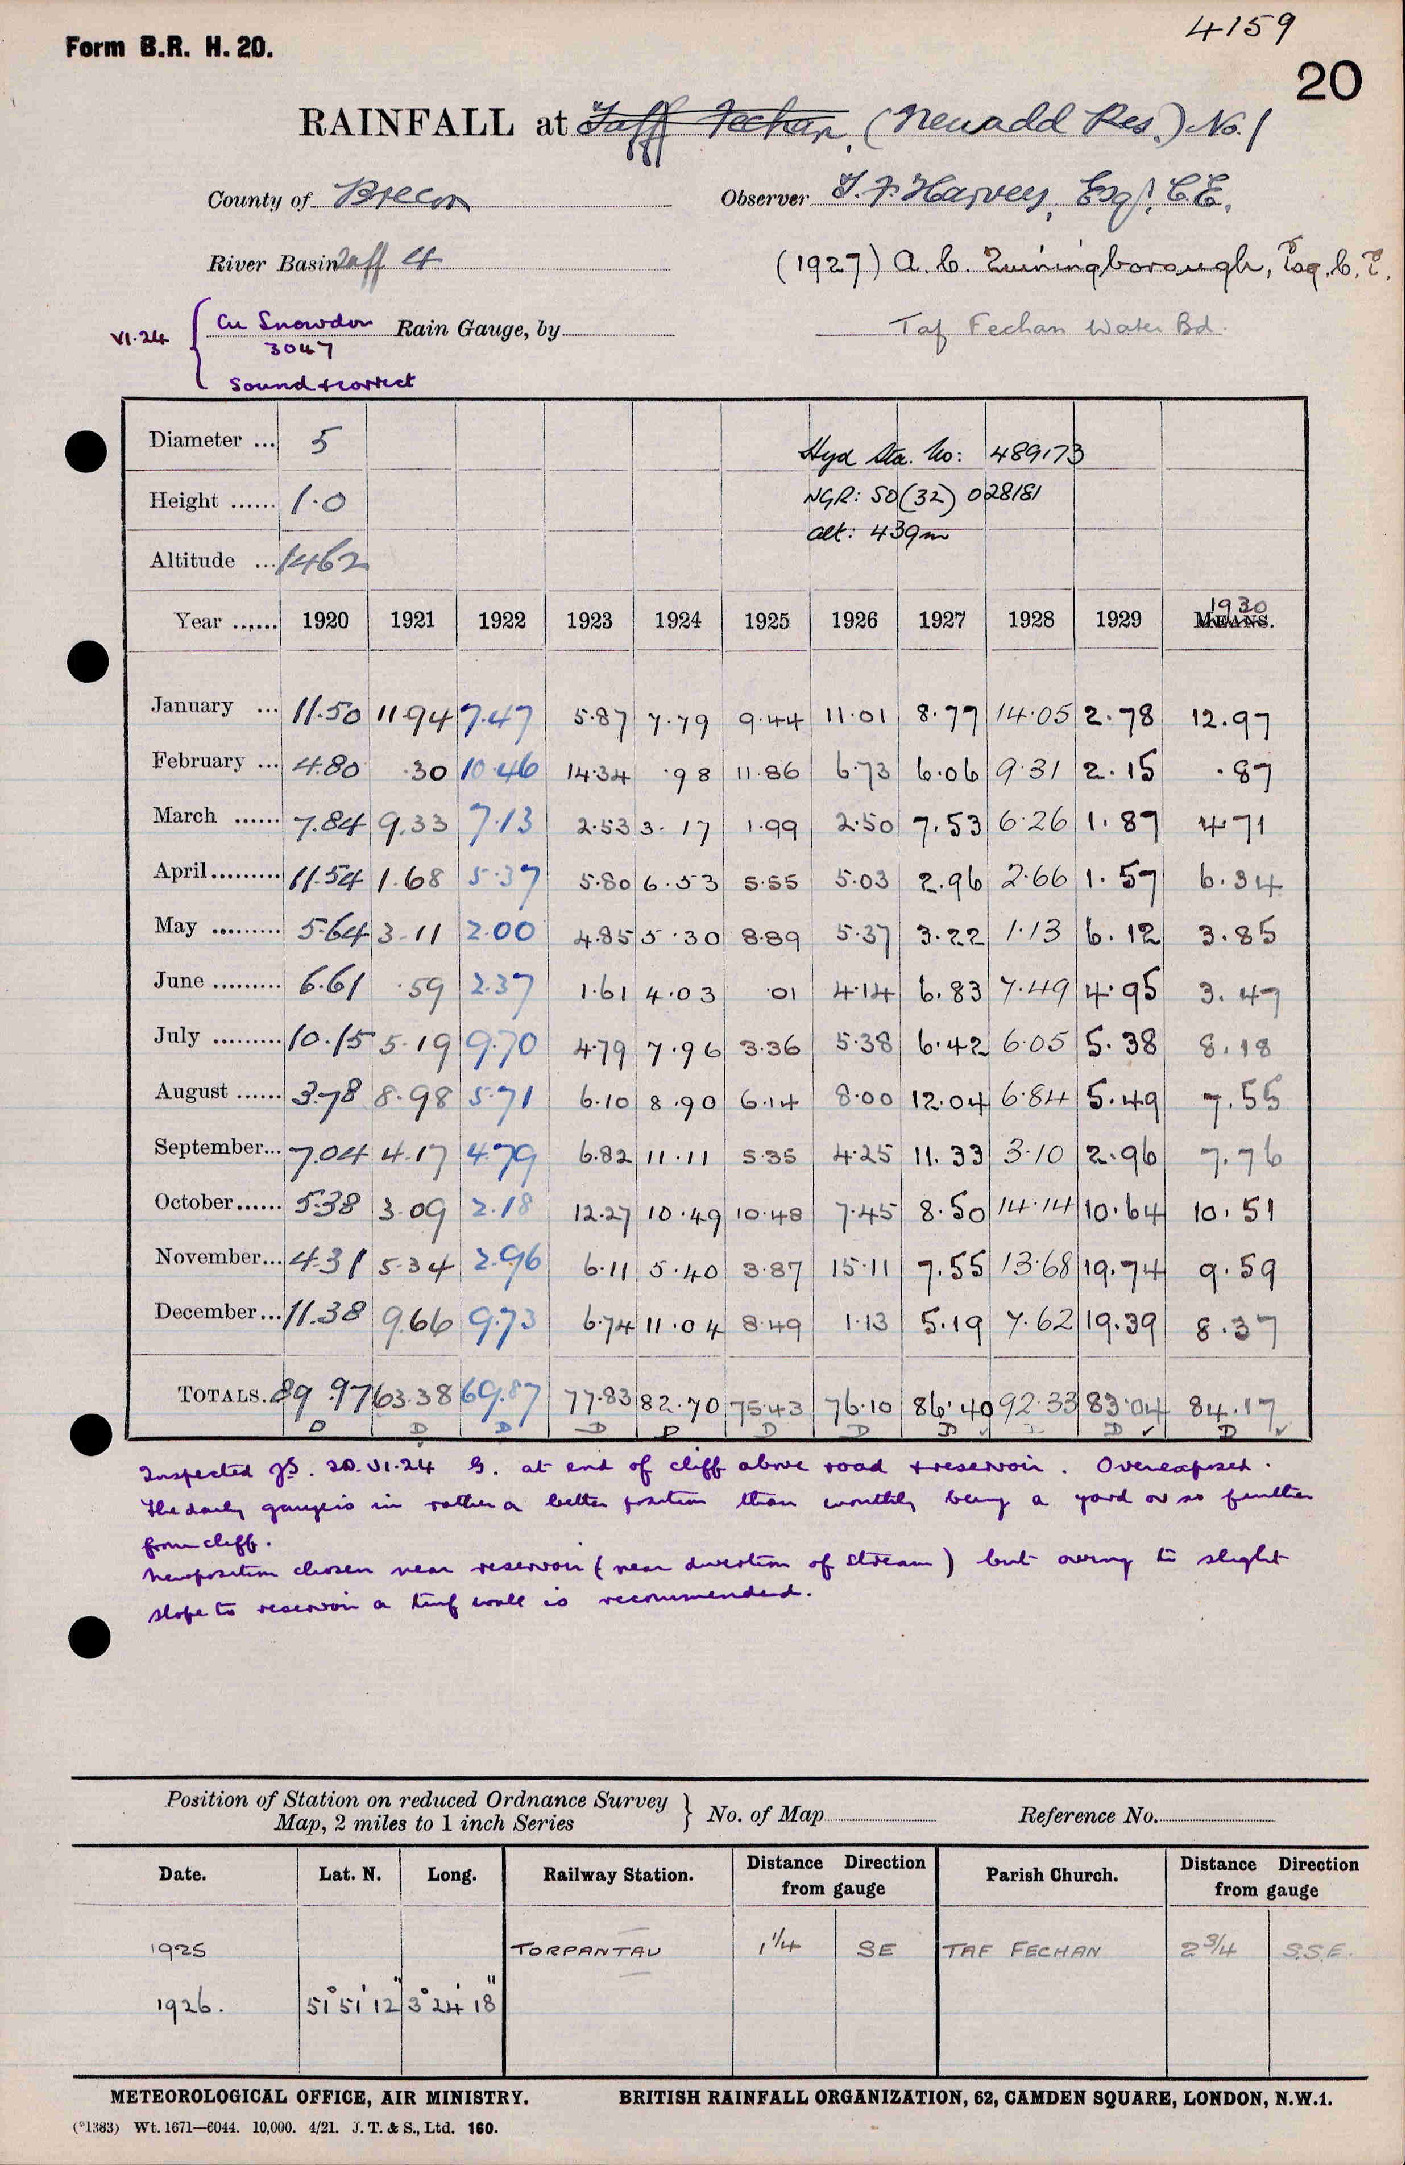 4159
Form B.R. H. 20.
20
RAINFALL at Taff Fechan, (Neuadd Res.) No. 1
County of Brecon Observer T. F. Harvey, Esq., C.E.
River Basin Taff 4 (1927) A. C. Esq. C.E.
VI.24 { Cu Snowdon Rain Gauge, by Taf Fechan Water Bd.
3047
Sound & correct
Diameter ... 5 Hyd Sta. No: 489173
Height ...... 1.0 NGR: SO (32) 028181
Altitude ... 1462 alt: 439m
Year ...... 1920 1921 1922 1923 1924 1925 1926 1927 1928 1929 MEANS. 1930
January ... 11.50 11.94 7.47 5.87 7.79 9.44 11.01 8.77 14.05 2.78 12.97
February ... 4.80 .30 10.46 14.34 .98 11.86 6.73 6.06 9.31 2.15 .87
March ...... 7.84 9.33 7.13 2.53 3.17 1.99 2.50 7.53 6.26 1.87 4.71
April......... 11.54 1.68 5.37 5.80 6.53 5.55 5.03 2.96 2.66 1.57 6.34
May ......... 5.64 3.11 2.00 4.85 5.30 8.89 5.37 3.22 1.13 6.12 3.85
June ......... 6.61 .59 2.37 1.61 4.03 .01 4.14 6.83 7.49 4.95 3.47
July ......... 10.15 5.19 9.70 4.79 7.96 3.36 5.38 6.42 6.05 5.38 8.18
August ...... 3.78 8.98 5.71 6.10 8.90 6.14 8.00 12.04 6.84 5.49 7.55
September... 7.04 4.17 4.79 6.82 11.11 5.35 4.25 11.33 3.10 2.96 7.76
October...... 5.38 3.09 2.18 12.27 10.49 10.48 7.45 8.50 14.14 10.64 10.51
November... 4.31 5.34 2.96 6.11 5.40 3.87 15.11 7.55 13.68 19.74 9.59
December... 11.38 9.66 9.73 6.74 11.04 8.49 1.13 5.19 7.62 19.39 8.37
TOTALS. 89.97 63.38 69.87 77.83 82.70 75.43 76.10 86.40 92.33 83.04 84.17
D D D D D D D D D D
Inspected 20.VI.24 G. at end of cliff above road & reservoir. Overexposed.
The daily gauge is in rather a better position than monthly being a yard or so further
from cliff.
New position chosen near reservoir (near diversion of stream) but owing to slight
slope to reservoir a turf wall is recommended.
Position of Station on reduced Ordnance Survey
Map, 2 miles to 1 inch Series } No. of Map Reference No.
Date. Lat. N. Long. Railway Station. Distance Direction from gauge Parish Church. Distance Direction from gauge
1925 TORPANTAU 1 1/4 SE TAF FECHAN 2 3/4 S.S.E.
1926. 51° 51' 12" 3° 24' 18"
METEOROLOGICAL OFFICE, AIR MINISTRY. BRITISH RAINFALL ORGANIZATION, 62, CAMDEN SQUARE, LONDON, N.W.1.
(*1383) Wt. 1671—6044. 10,000. 4/21. J. T. & S., Ltd. 160.